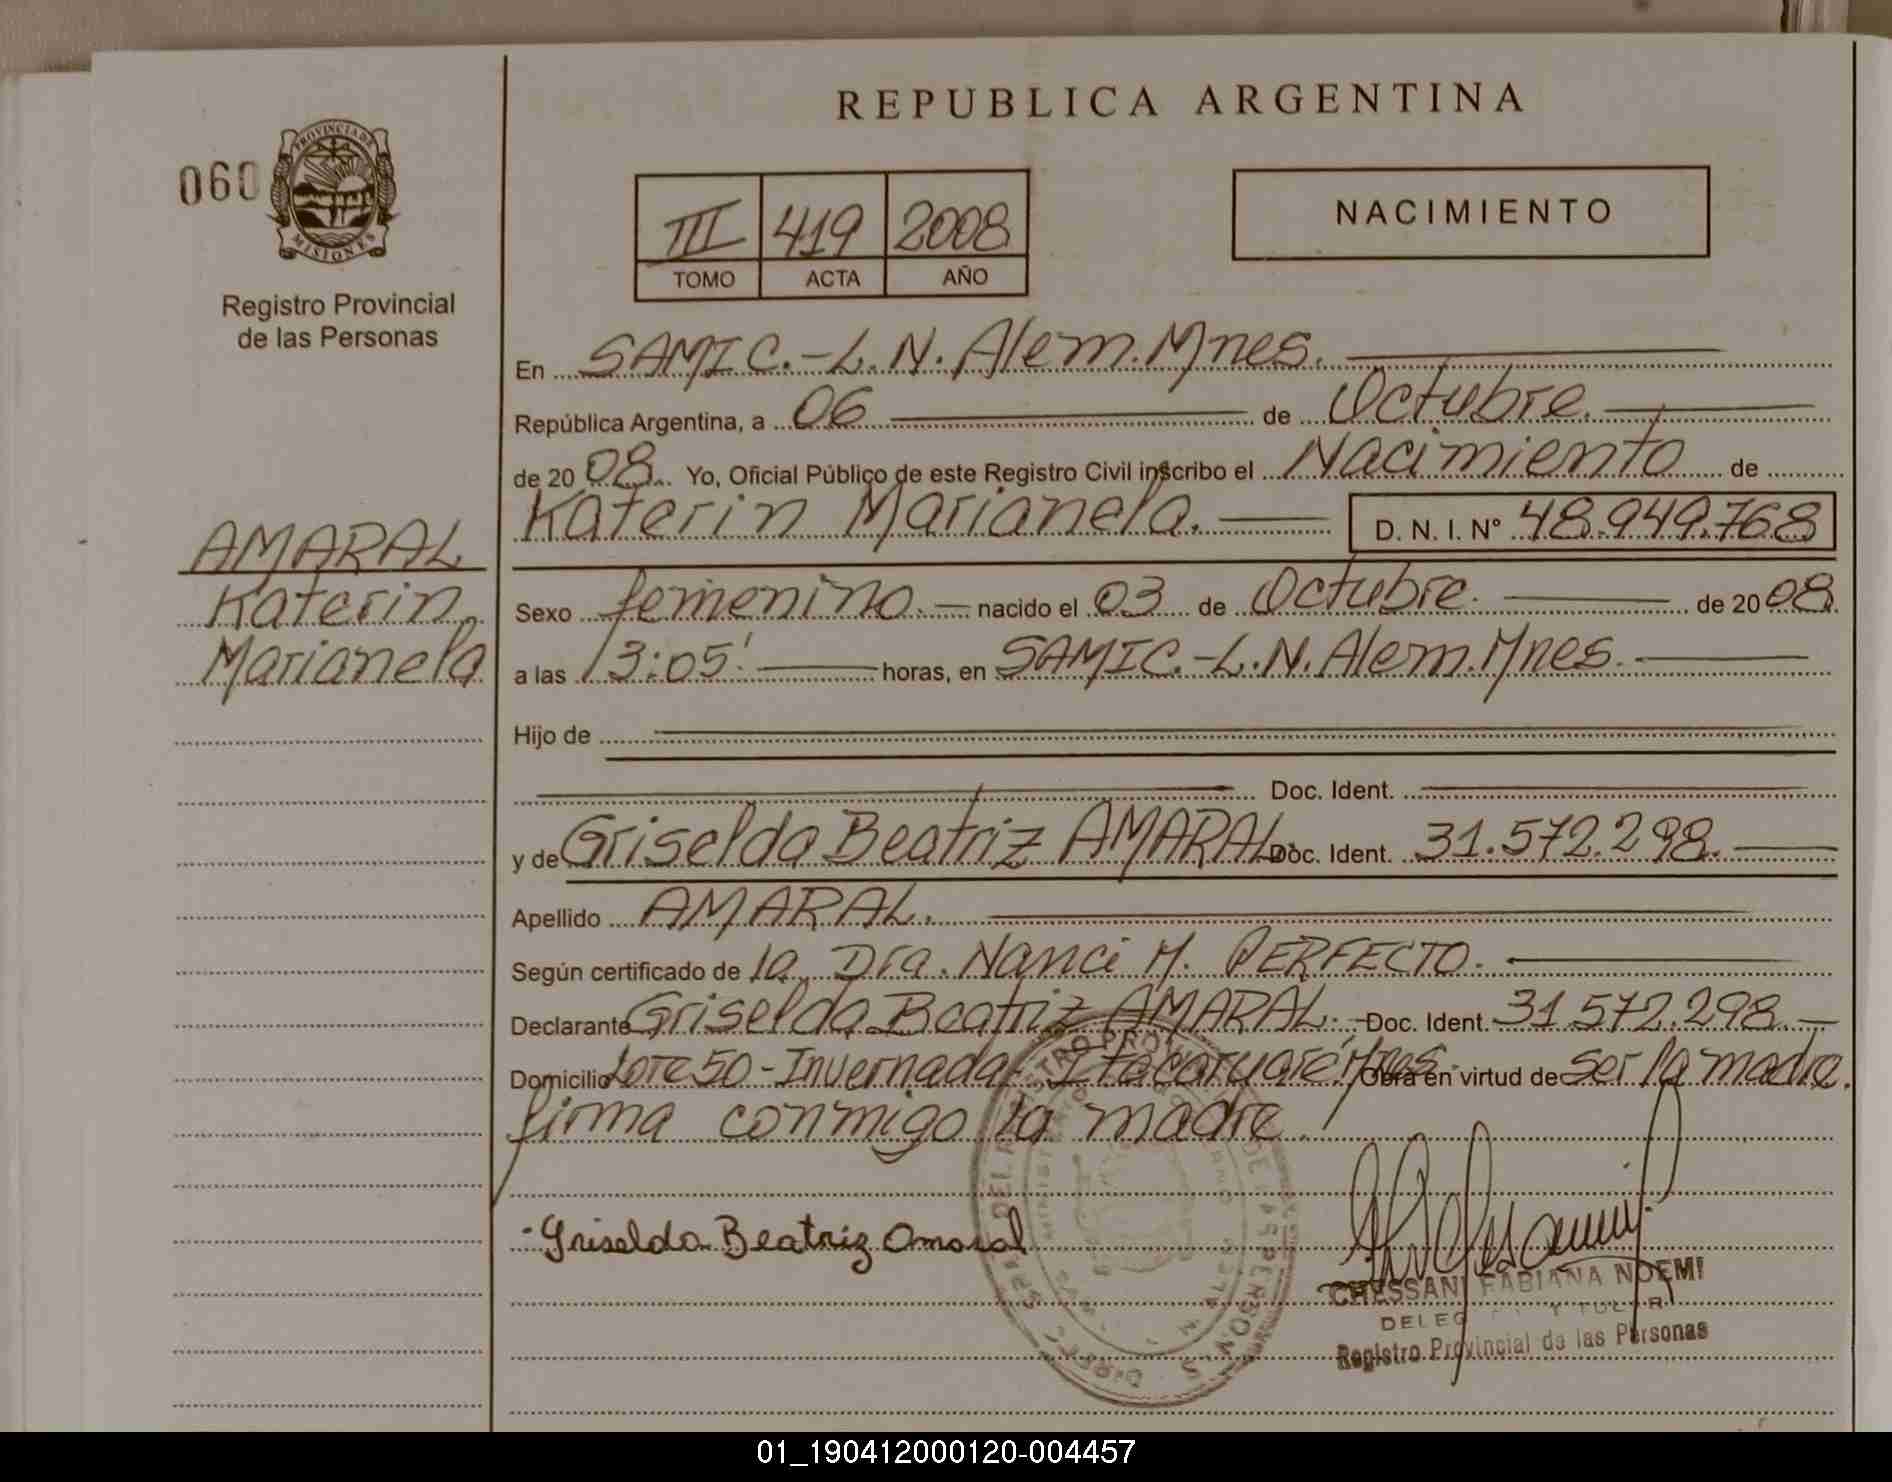 REPUBLICA ARGENTINA
060
PROVINCIA DE
MISIONES
Registro Provincial
de las Personas
III 419 2008
TOMO ACTA AÑO
NACIMIENTO
En SAMIC.-L.N.Alem.Mnes.
República Argentina, a 06 de Octubre.
de 20 08. Yo, Oficial Público de este Registro Civil inscribo el Nacimiento de
Katerin Marianela. D. N. I. Nº 48.949.768
AMARAL
Katerin
Marianela
Sexo femenino. nacido el 03 de Octubre. de 20 08.
a las 13:05' horas, en SAMIC.-L.N.Alem.Mnes.
Hijo de
Doc. Ident.
y de Griselda Beatriz AMARAL Doc. Ident. 31.572.298.
Apellido AMARAL.
Según certificado de la Dra. Nanci M. PERFECTO.
Declarante Griselda Beatriz AMARAL. Doc. Ident. 31.572.298.
Domicilio Lote 50-Invernada- Itacaruaré Mnes. Obra en virtud de ser la madre.
firma conmigo la madre.
Griselda Beatriz Amaral
CHESSANI FABIANA NOEMI
Registro Provincial de las Personas
01_190412000120-004457